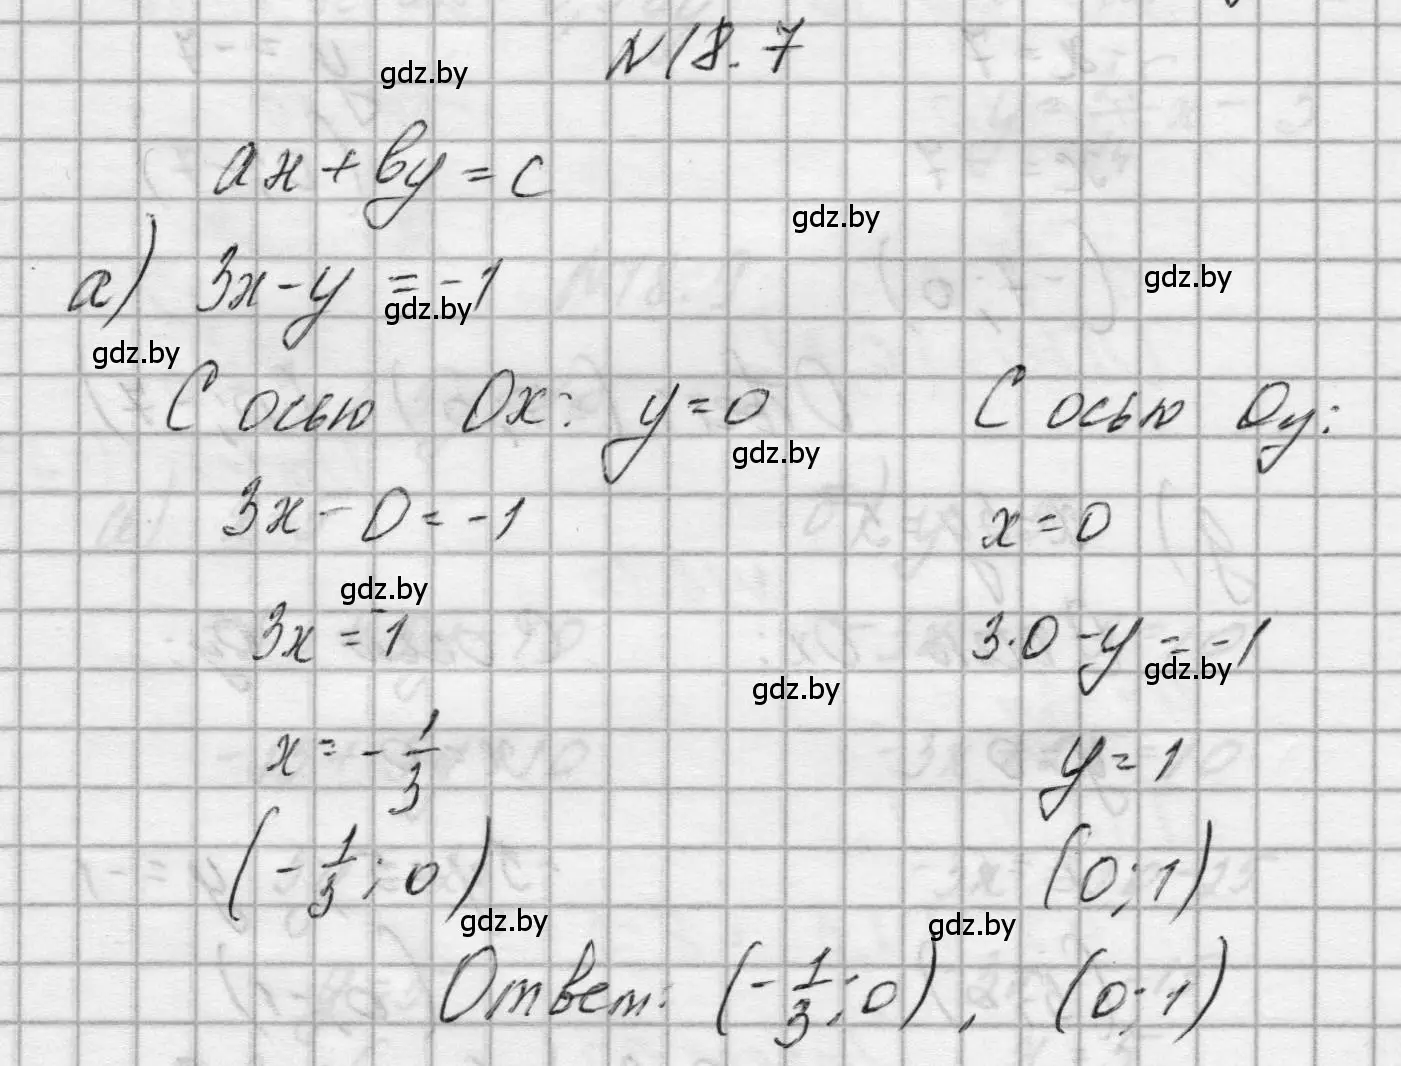 №18.7
gdz.by
ax + by = c
gdz.by
а) 3x - y = -1
gdz.by
gdz.by
gdz.by
С осью Ox: y = 0
С осью Oy:
gdz.by
3x - 0 = -1
x = 0
gdz.by
3x = -1
3·0 - y = -1
gdz.by
gdz.by
x = -1/3
y = 1
(-1/3; 0)
(0; 1)
gdz.by
gdz.by
Ответ: (-1/3; 0), (0; 1)